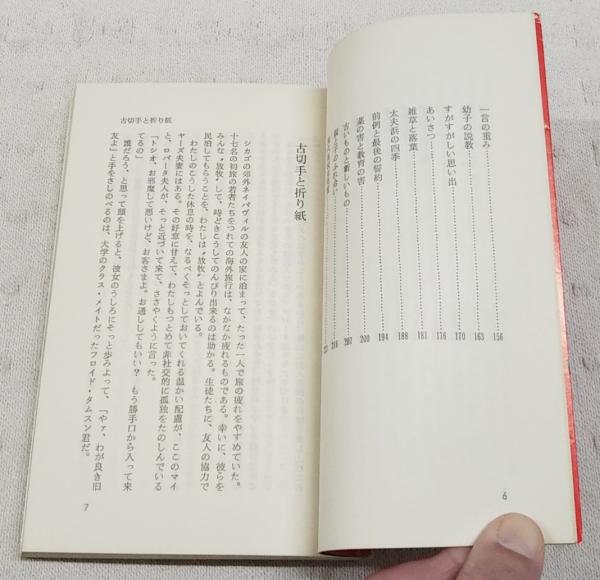 一言の重み……156
幼子の説教……163
すがすがしい思い出……170
あいさつ……176
雑草と落葉……181
太夫浜の四季……188
前例と最後の誓約……194
薬の害と教育の害……200
古いものと新しいもの……207
216
6
古切手と折り紙
古切手と折り紙
シカゴの郊外ネイパヴィルの友人の家に泊まって、たった一人で旅の疲れをやすめていた。
十七名の初旅の若者たちをつれての海外旅行は、なかなか疲れるものである。幸いに、彼らを
みんな〝放牧〟して、時どきこうしてのんびり出来るのは助かる。生徒たちに、友人の協力で
民泊してもらうことを、わたしは〝放牧〟とよんでいる。
わたしのこうした休息の時を、なるべくそっとしておいてくれる温かい配慮が、ここのマイ
ヤーズ夫妻にはある。その好意に甘えて、わたしもつとめて非社交的に孤独をたのしんでいる
と、ロバータ夫人が、そっと近づいて来て、ささやくように言った。
「トシオ、お邪魔して悪いけど、お客さまよ。お通ししてもいい？　もう勝手口から入って来
てるの」
誰だろう、と思って顔を上げると、彼女のうしろにそっと歩みよって、「やァ、わが良き旧
友よ」と手をさしのべるのは、大学のクラス・メイトだったフロイド・タムスン君だ。
7